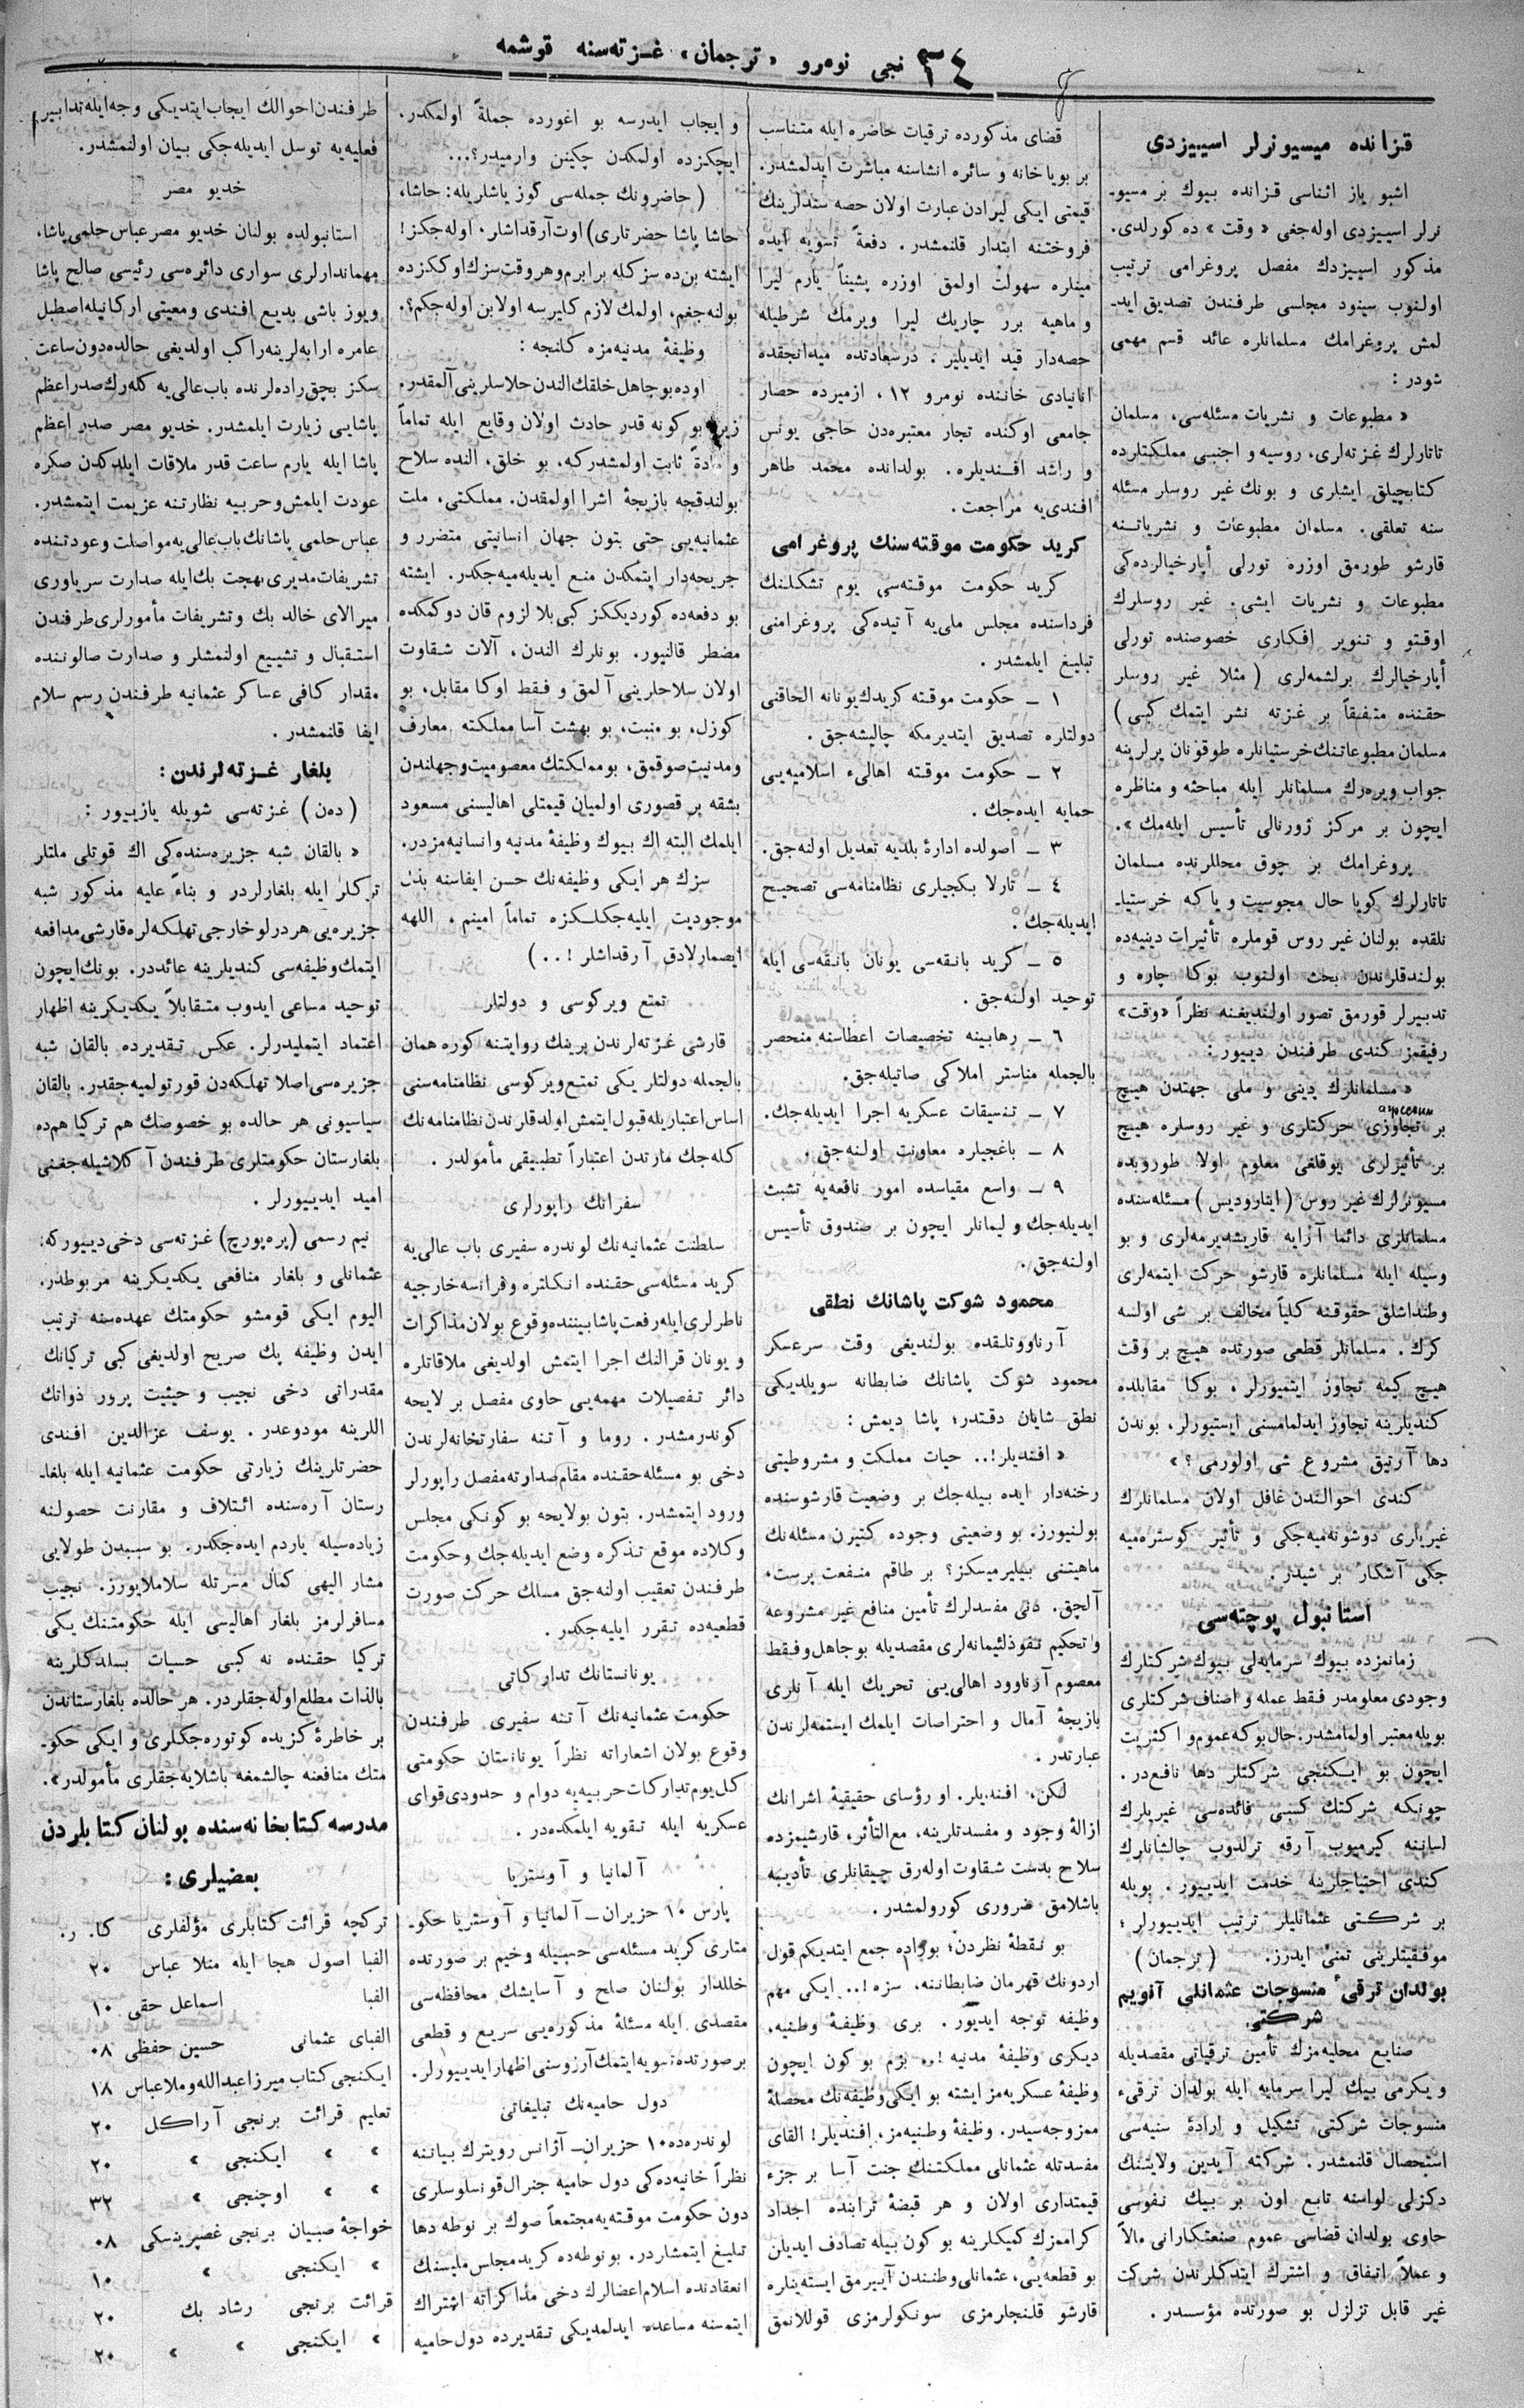 ٣٤ نجی نومرو «ترجمان» غـزته‌سنه قوشمه
قزانده میسیونرلر اسییزدی
اشبو یاز اثناسی قزانده بیوك بر مسیو-
نرلر اسییزدی اوله‌جغی «وقت» ده كورلدی.
مذكور اسییزدك مفصل پروغرامی ترتیب
اولنوب سینود مجلسی طرفندن تصدیق اید-
لمش پروغرامك مسلمانلره عائد قسم مهمی
شودر:
«مطبوعات و نشریات مسئله‌سی، مسلمان
تاتارلرك غزته‌لری، روسیه و اجنبی مملكتلرده
كتابچیلق ایشلری و بونك غیر روسلر مسئله
سنه تعلقی. مسلمان مطبوعات و نشریاتنه
قارشو طورمق اوزره تورلی أپارخیالرده‌كی
مطبوعات و نشریات ایشی. غیر روسلرك
اوقتو و تنویر افكاری خصوصنده تورلی
أپارخیالرك برلشمه‌لری (مثلا غیر روسلر
حقنده متفیقاً بر غزته نشر ایتمك كبی)
مسلمان مطبوعاتنك خرستیانلره طوقونان یرلرینه
جواب ویره‌رك مسلمانلر ایله مباحثه و مناظره
ایچون بر مركز ژورنالی تأسیس ایله‌مك».
پروغرامك بر چوق محللرنده مسلمان
تاتارلرك كویا حال مجوسیت و یا كه خرستیا-
نلقده بولنان غیر روس قوملره تأثیرات دینیه‌ده
بولندقلرندن بحث اولنوب بوكا چاره و
تدبیرلر قورمق تصور اولندیغنه نظراً «وقت»
رفیقمز كندی طرفندن دییور:
«مسلمانلرك دینی و ملی جهتدن هیچ
بر تجاوزی حركتلری و غیر روسلره هیچ
بر تأثیرلری یوقلغی معلوم اولا طوروبده
مسیونرلرك غیر روس (اینارودیس) مسئله‌سنده
مسلمانلری دائما آرایه قاریشدیرمه‌لری و بو
وسیله ایله مسلمانلره قارشو حركت ایتمه‌لری
وطنداشلق حقوقنه كلیاً مخالف بر شی اولسه
كرك. مسلمانلر قطعی صورتده هیچ بر وقت
هیچ كیمه تجاوز ایتمیورلر، بوكا مقابلده
كندیلرینه تجاوز ایدلمامسنی ایستیورلر، بوندن
دها آرتیق مشروع شی اولورمی؟»
كندی احوالندن غافل اولان مسلمانلرك
غیرلری دوشونه‌میه‌جكی و تأثیر كوستره‌میه
جكی آشكار بر شیدر.
استانبول پوچته‌سی
زمانمزده بیوك سرمایه‌لی بیوك شركتلرك
وجودی معلومدر فقط عمله و اصناف شركتلری
بویله معتبر اولمامشدر. حال بو كه عموم و اكثریت
ایچون بو ایكنجی شركتلر دها نافع‌در.
چونكه شركتك كسبی فائده‌سی غیریلرك
لساننه كیرمیوب آرقه ترلدوب چالشانلرك
كندی احتیاجلرینه خدمت ایدییور. بویله
بر شركتی عثمانلیلر ترتیب ایدییورلر؛
موفقیتلرینی تمنی ایدرز. (ترجمان)
بولدان ترقیء منسوجات عثمانلی آنونیم
شركتی
صنایع محلیه‌مزك تأمین ترقیاتی مقصدیله
و یكرمی بیك لیرا سرمایه ایله بولدان ترقیء
منسوجات شركتی تشكیل و ارادهٔ سنیه‌سی
استحصال قلنمشدر. شركته آیدین ولایتنك
دكزلی لواسنه تابع اون بر بیك نفوسی
حاوی بولدان قضاسی عموم صنعتكارانی مالاً
و عملاً اتفاق و اشترك ایتدكلرندن شركت
غیر قابل تزلزل بو صورتده مؤسسدر.
قضای مذكورده ترقیات حاضره ایله متناسب
بر بویاخانه و سائره انشاسنه مباشرت ایدلمشدر.
قیمتی ایكی لیرادن عبارت اولان حصه سندلرینك
فروختنه ابتدار قلنمشدر. دفعةً تسویه ایده
مینلره سهولت اولمق اوزره پشیناً یارم لیرا
و ماهیه برر چاریك لیرا ویرمك شرطیله
حصه‌دار قید ایدیلیر. درسعادتده میدانجقده
انانیادی خاننده نومرو ١٢، ازمیرده حصار
جامعی اوكنده تجار معتبره‌دن حاجی یونس
و راشد افندیلره. بولدانده محمد طاهر
افندی‌یه مراجعت.
كرید حكومت موقته‌سنك پروغرامی
كرید حكومت موقته‌سی یوم تشكلنك
فرداسنده مجلس ملی‌یه آتیده‌كی پروغرامنی
تبلیغ ایلمشدر.
١ ـ حكومت موقته كریدك یونانه الحاقنی
دولتلره تصدیق ایتدیرمكه چالیشه‌جق.
٢ ـ حكومت موقته اهالیء اسلامیه‌یی
حمایه ایده‌جك.
٣ ـ اصولده ادارهٔ بلدیه تعدیل اولنه‌جق.
٤ ـ تارلا بكجیلری نظامنامه‌سی تصحیح
ایدیله‌جك.
٥ ـ كرید بانقه‌سی یونان بانقه‌سی ایله
توحید اولنه‌جق.
٦ ـ رهابینه تخصیصات اعطاسنه منحصر
بالجمله مناستر املاكی صاتیله‌جق.
٧ ـ تنسیقات عسكریه اجرا ایدیله‌جك.
٨ ـ باغجیلره معاونت اولنه‌جق.
٩ ـ واسع مقیاسده امور نافعه‌یه تشبث
ایدیله‌جك و لیمانلر ایچون بر صندوق تأسیس
اولنه‌جق.
محمود شوكت پاشانك نطقی
آرناووتلقده بولندیغی وقت سرعسكر
محمود شوكت پاشانك ضابطانه سویلدیكی
نطق شایان دقتدر؛ پاشا دیمش:
«افندیلر!.. حیات مملكت و مشروطیتی
رخنه‌دار ایده بیله‌جك بر وضعیت قارشوسنده
بولنیورز. بو وضعیتی وجوده كتیرن مسئله‌نك
ماهیتنی بیلیرمیسكز؟ بر طاقم منفعت پرست،
آلچق. دنی مفسدلرك تأمین منافع غیر مشروعه
و تحكیم نفوذ لئیمانه‌لری مقصدیله بو جاهل و فقط
معصوم آرناوود اهالی‌یی تحریك ایله آنلری
بازیچهٔ آمال و احتراصات ایلمك ایستمه‌لرندن
عبارتدر.
لكن، افندیلر. او رؤسای حقیقیهٔ اشرانك
ازالهٔ وجود و مفسدتلرینه، مع‌التأثر، قارشیمزده
سلاح بدست شقاوت اوله‌رق چیقانلری تأدیبه
باشلامق ضروری كورولمشدر.
بو نقطهٔ نظردن؛ بوراده جمع ایتدیكم قول
اردونك قهرمان ضابطاننه. سزه!.. ایكی مهم
وظیفه توجه ایدیور. بری وظیفهٔ وطنیه،
دیكری وظیفهٔ مدنیه!.. بزم بو كون ایچون
وظیفهٔ عسكریه‌مز ایشته بو ایكی وظیفه‌نك محصلهٔ
ممزوجه‌سیدر. وظیفهٔ وطنیه‌مز، افندیلر! القای
مفسدتله عثمانلی مملكتنك جنت آسا بر جزء
قیمتداری اولان و هر قبضهٔ ترابنده اجداد
كرامزك كمیكلرینه بو كون بیله تصادف ایدیلن
بو قطعه‌یی، عثمانلی وطنندن آییرمق ایسته‌ینلره
قارشو قلنجلرمزی سونكولرمزی قوللانمق
و ایجاب ایدرسه بو اغورده جملةً اولمكدر.
ایچكزده اولمكدن چكینن وارمیدر؟...
(حاضرونك جمله‌سی كوز یاشلریله: حاشا،
حاشا پاشا حضرتلری) اوت آرقداشلر. اوله‌جكز!
ایشته بن‌ده سزكله برابرم و هر وقت سزك اوككزده
بولنه‌جغم، اولمك لازم كلیرسه اولا بن اوله‌جكم؟.
وظیفهٔ مدنیه‌مزه كلنجه:
اوده بو جاهل خلقك الندن حلاسلرینی آلمقدر.
زیرا بو كونه قدر حادث اولان وقایع ایله تماماً
و مادةً ثابت اولمشدركه، بو خلق، النده سلاح
بولندقجه بازیچهٔ اشرا اولمقدن. مملكتی، ملت
عثمانیه‌یی حتی بتون جهان انسانیتی متضرر و
جریحه‌دار ایتمكدن منع ایدیله‌میه‌جكدر. ایشته
بو دفعه‌ده كوردیككز كبی بلا لزوم قان دوكمكده
مضطر قالنیور. بونلرك الندن، آلات شقاوت
اولان سلاحلرینی آلمق و فقط اوكا مقابل، بو
كوزل، بو منبت، بو بهشت آسا مملكته معارف
و مدنیت صوقمق، بو مملكتك معصومیت و جهلندن
بشقه بر قصوری اولمیان قیمتلی اهالیسنی مسعود
ایلمك البته اك بیوك وظیفهٔ مدنیه و انسانیه‌مزدر.
سزك هر ایكی وظیفه‌نك حسن ایفاسنه بذل
موجودیت ایلیه‌جكلكزه تماماً امینم، اللهه
ایصمارلادق آرقداشلر!..)
تمتع ویركوسی و دولتلر
قارشی غزته‌لرندن برینك روایتنه كوره همان
بالجمله دولتلر یكی تمتع ویركوسی نظامنامه‌سنی
اساس اعتباریله قبول ایتمش اولدقلرندن نظامنامه‌نك
كله‌جك مارتدن اعتباراً تطبیقی مأمولدر.
سفرانك راپورلری
سلطنت عثمانیه‌نك لوندره سفیری باب عالی‌یه
كرید مسئله‌سی حقنده انكلتره و فرانسه خارجیه
ناطرلری ایله رفعت پاشا بیننده وقوع بولان مذاكرات
و یونان قرالنك اجرا ایتمش اولدیغی ملاقاتلره
دائر تفصیلات مهمه‌یی حاوی مفصل بر لایحه
كوندرمشدر. روما و آتنه سفارتخانه‌لرندن
دخی بو مسئله حقنده مقام صدارته مفصل راپورلر
ورود ایتمشدر. بتون بو لایحه بو كونكی مجلس
وكلاده موقع تذكره وضع ایدیله‌جك و حكومت
طرفندن تعقیب اولنه‌جق مسلك حركت صورت
قطعیه‌ده تقرر ایلیه‌جكدر.
یونانستانك تداركاتی
حكومت عثمانیه‌نك آتنه سفیری طرفندن
وقوع بولان اشعاراته نظراً یونانستان حكومتی
كل یوم تداركات حربیه‌یه دوام و حدودی قوای
عسكریه ایله تقویه ایلمكده‌در.
آلمانیا و آوستریا
پارس ١٠ حزیران ـ آلمانیا و آوستریا حكو-
متلری كرید مسئله‌سی حسبیله وخیم بر صورتده
خللدار بولنان صلح و آسایشك محافظه‌سی
مقصدی ایله مسئلهٔ مذكوره‌یی سریع و قطعی
بر صورتده تسویه ایتمك آرزوسنی اظهار ایدییورلر.
دول حامیه‌نك تبلیغاتی
لوندره‌ده ١٠ حزیران ـ آژانس رویترك بیاننه
نظراً خانیه‌ده‌كی دول حامیه جنرال قونسلوسلری
دون حكومت موقته‌یه مجتمعاً صوك بر نوطه دها
تبلیغ ایتمشلردر. بو نوطه‌ده كرید مجلس ملیسنك
انعقادنده اسلام اعضالرك دخی مذاكراته اشتراك
ایتمسنه مساعده ایدلمدیكی تقدیرده دول حامیه
طرفندن احوالك ایجاب ایتدیكی وجه ایله تدابیر
فعلیه‌یه توسل ایدیله‌جكی بیان اولنمشدر.
خدیو مصر
استانبولده بولنان خدیو مصر عباس حلمی پاشا،
مهماندارلری سواری دائره‌سی رئیسی صالح پاشا
و یوز باشی بدیع افندی و معیتی اركانیله اصطبل
عامره ارابه‌لرینه راكب اولدیغی حالده دون ساعت
سكز بچق راده‌لرنده باب عالی‌یه كله‌رك صدر اعظم
پاشایی زیارت ایلمشدر. خدیو مصر صدر اعظم
پاشا ایله یارم ساعت قدر ملاقات ایلدكدن صكره
عودت ایلمش و حربیه نظارتنه عزیمت ایتمشدر.
عباس حلمی پاشانك باب عالی‌یه مواصلت و عودتنده
تشریفات مدیری بهجت بك ایله صدارت سریاوری
میرالای خالد بك و تشریفات مأمورلری طرفندن
استقبال و تشییع اولنمشلر و صدارت صالوننده
مقدار كافی عساكر عثمانیه طرفندن رسم سلام
ایفا قلنمشدر.
بلغار غـزته‌لرندن:
(ده‌ن) غزته‌سی شویله یازییور:
«بالقان شبه جزیره‌سنده‌كی اك قوتلی ملتلر
تركلر ایله بلغارلردر و بناءً علیه مذكور شبه
جزیره‌یی هر درلو خارجی تهلكه‌لره قارشی مدافعه
ایتمك وظیفه‌سی كندیلرینه عائددر. بونك ایچون
توحید مساعی ایدوب متقابلاً یكدیكرینه اظهار
اعتماد ایتملیدرلر. عكس تقدیرده بالقان شبه
جزیره‌سی اصلا تهلكه‌دن قورتولمیه‌جقدر. بالقان
سیاسیونی هر حالده بو خصوصك هم تركیا هم‌ده
بلغارستان حكومتلری طرفندن آكلاشیله‌جغنی
امید ایدییورلر.
نیم رسمی (پره‌پورچ) غزته‌سی دخی دییوركه:
عثمانلی و بلغار منافعی یكدیكرینه مربوطدر.
الیوم ایكی قومشو حكومتك عهده‌سنه ترتیب
ایدن وظیفه پك صریح اولدیغی كبی تركیانك
مقدراتی دخی نجیب و حیثیت پرور ذواتك
اللرینه مودوعدر. یوسف عزالدین افندی
حضرتلرینك زیارتی حكومت عثمانیه ایله بلغا-
رستان آره‌سنده ائتلاف و مقارنت حصولنه
زیاده‌سیله یاردم ایده‌جكدر. بو سببدن طولایی
مشار الیهی كمال مسرتله سلاملایورز. نجیب
مسافرلرمز بلغار اهالیسی ایله حكومتنك یكی
تركیا حقنده نه كبی حسیات بسلدكلرینه
بالذات مطلع اوله‌جقلردر. هر حالده بلغارستاندن
بر خاطرهٔ كزیده كوتوره‌جكلری و ایكی حكو-
متك منافعنه چالشمغه باشلایه‌جقلری مأمولدر».
مدرسه كتابخانه‌سنده بولنان كتابلردن
بعضیلری:
تركچه قرائت كتابلری مؤلفلری كا. ر.
الفبا اصول هجا ایله منلا عباس ٢٠
الفبا اسماعل حقی ١٠
الفبای عثمانی حسین حفظی ٠٨
ایكنجی كتاب میرزا عبدالله و ملا عباس ١٨
تعلیم قرائت برنجی آراكل ٢٠
» » ایكنجی » ٢٠
» » اوچنجی » ٣٢
خواجهٔ صبیان برنجی غصپرینسكی ٠٨
» ایكنجی » ١٠
قرائت برنجی رشاد بك ٢٠
» ایكنجی » » ٢٠